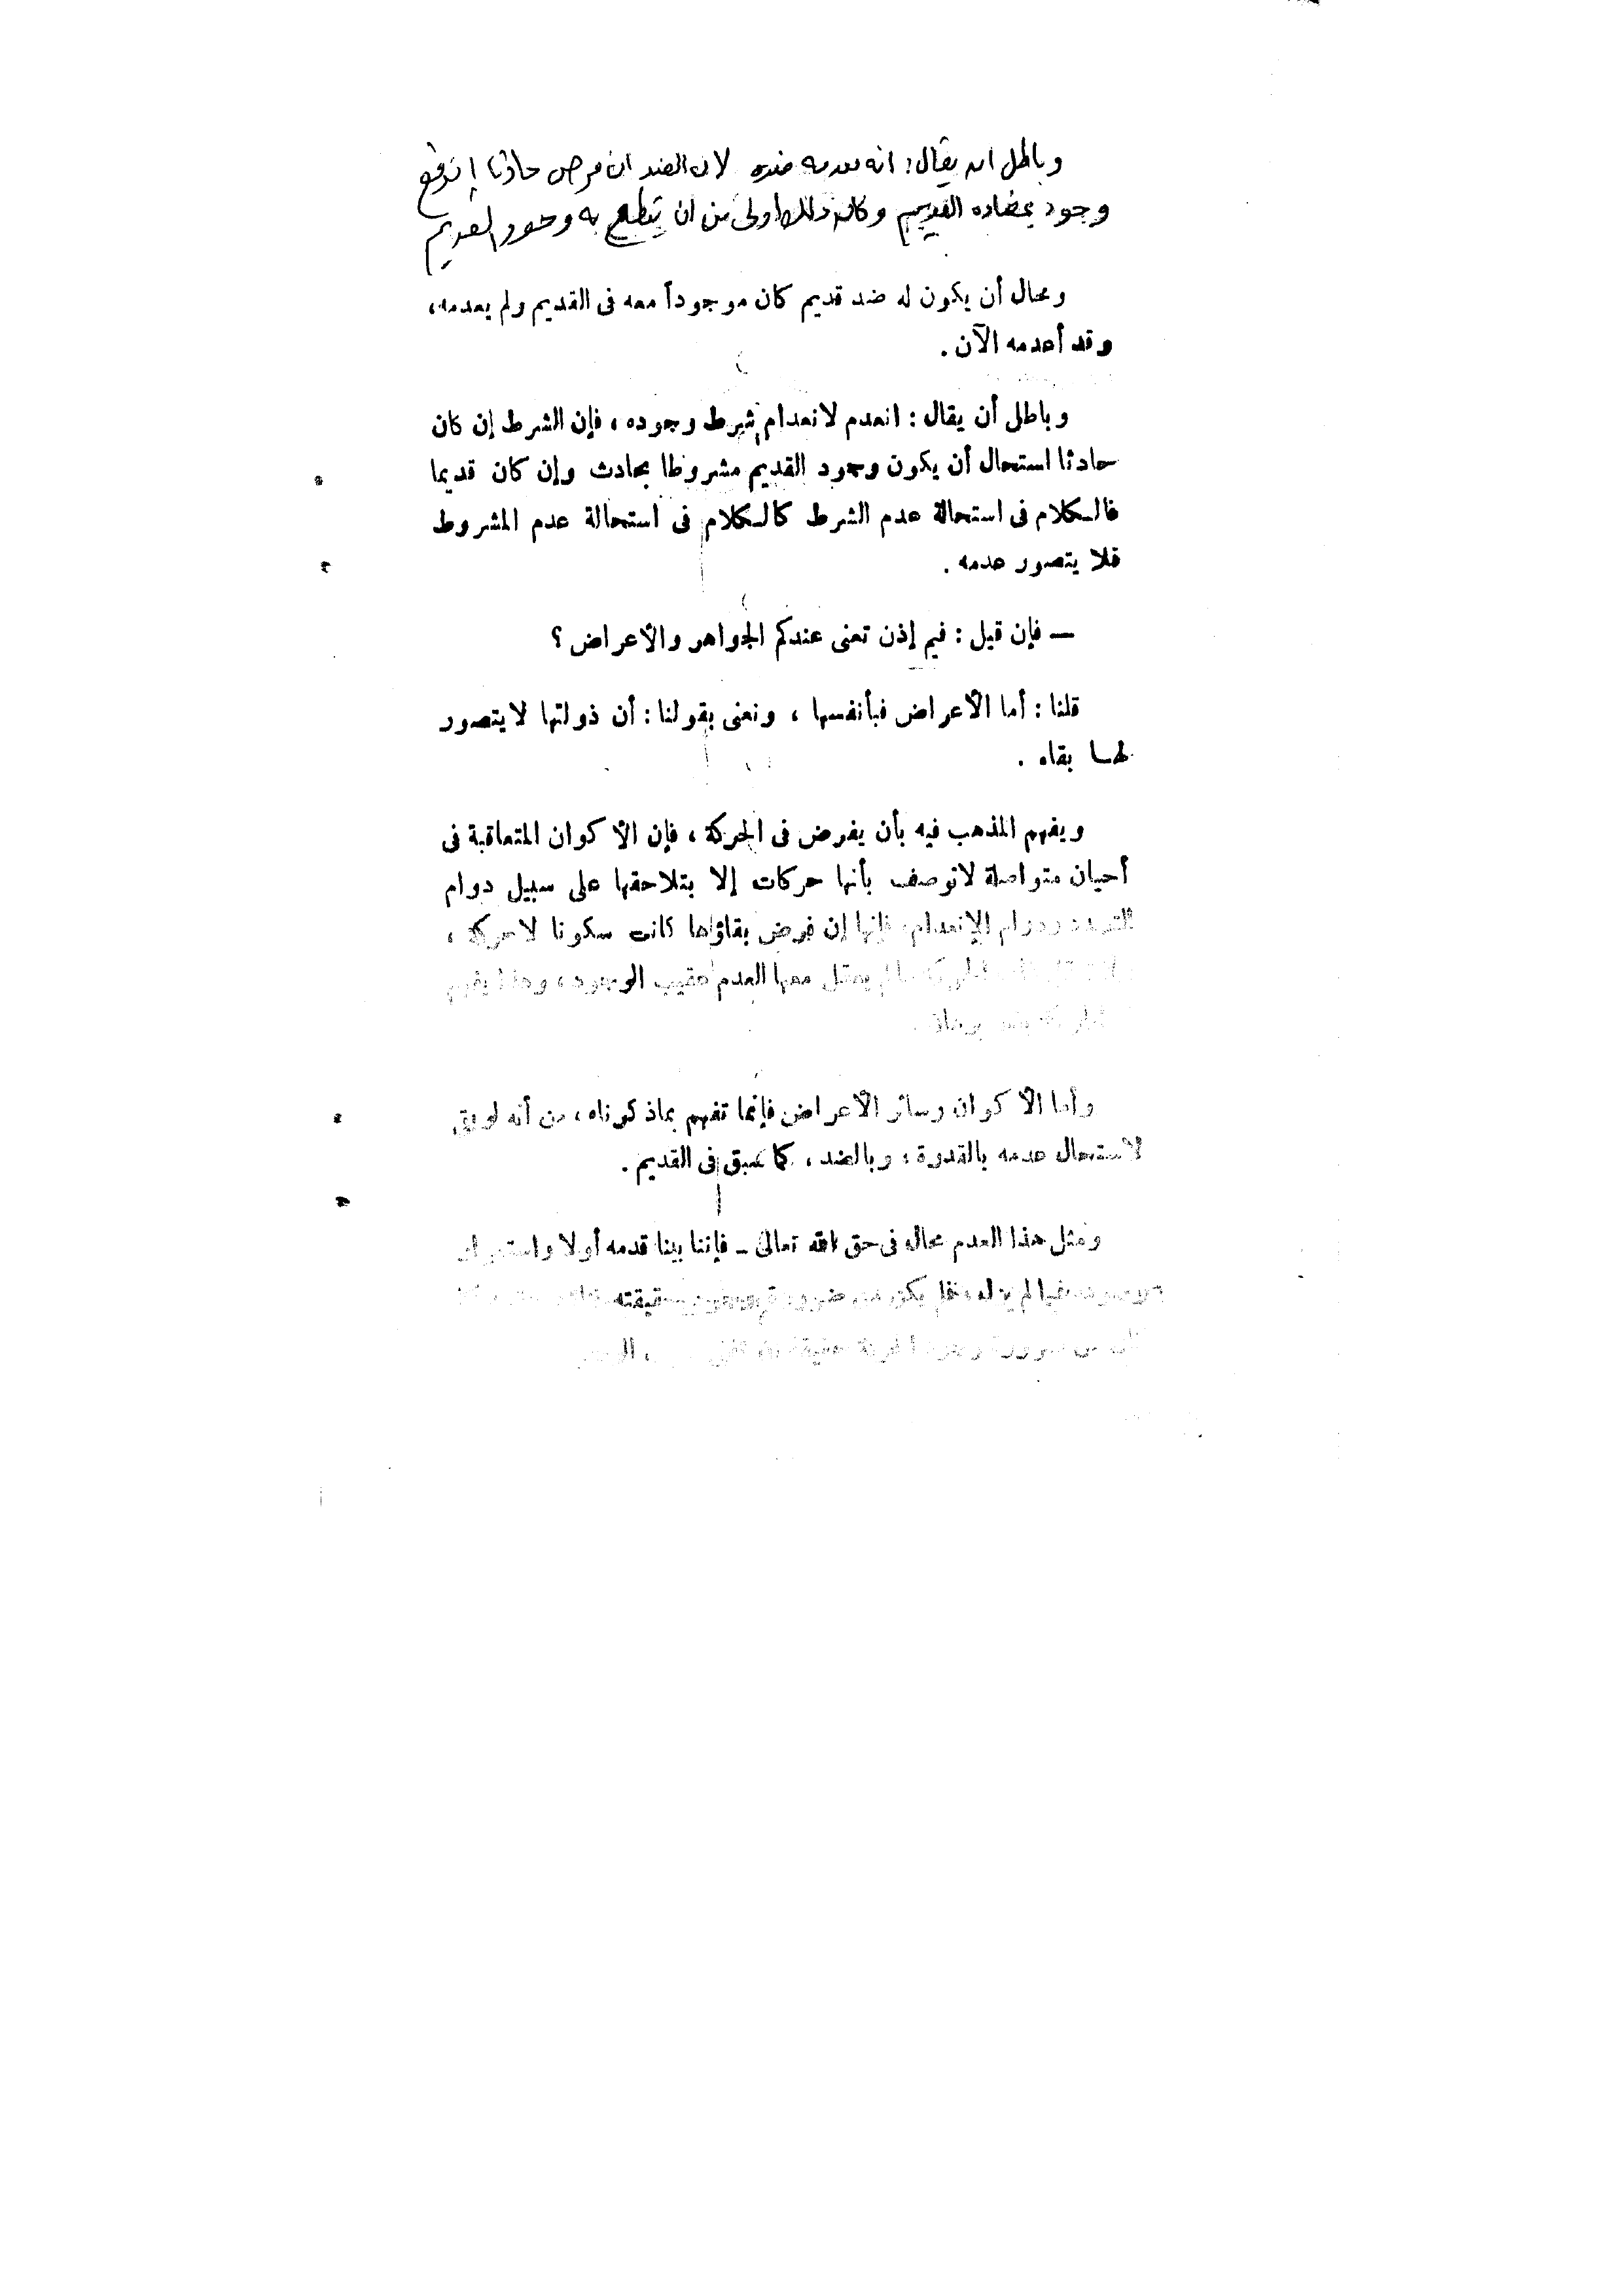 وباطل ان يقال: انه يعدمه ضده لان الضد ان فرض حادثا اندفع
وجود بمضاده القديم وكان ذلك اولى من ان ينقطع به وجود القديم
ومحال أن يكون له ضد قديم كان موجوداً معه فى القديم ولم يعدمه،
وقد أعدمه الآن.
وباطل أن يقال: انعدم لانعدام شرط وجوده، فإن الشرط إن كان
حادثا استحال أن يكون وجود القديم مشروطا بحادث وإن كان قديما
فالكلام فى استحالة عدم الشرط كالكلام فى استحالة عدم المشروط
فلا يتصور عدمه.
— فإن قيل: فبم إذن تعنى عندكم الجواهر والأعراض؟
قلنا: أما الأعراض فبأنفسها، ونعنى بقولنا: أن ذولتها لا يتصور
لهـا بقاء.
ويفهم المذهب فيه بأن يفرض فى الحركة، فإن الأكوان المتعاقبة فى
أحيان متواصلة لاتوصف بأنها حركات إلا بتلاحقها على سبيل دوام
التجدد ودوام الإنعدام، فإنها إن فرض بقاؤها كانت سكونا لا حركة،
يعقل معها العدم عقيب الوجود، وهذا يفهم
برهان.
وأما الأكوان وسائر الأعراض فإنما تفهم بماذكرناه، من أنه لو بقى
لاستحال عدمه بالقدرة، وبالضد، كما سبق فى القديم.
ومثل هذا العدم محال فى حق الله تعالى – فإننا بينا قدمه أولا واستمرار
فيما لم يزل، فلم يكن من ضرورة